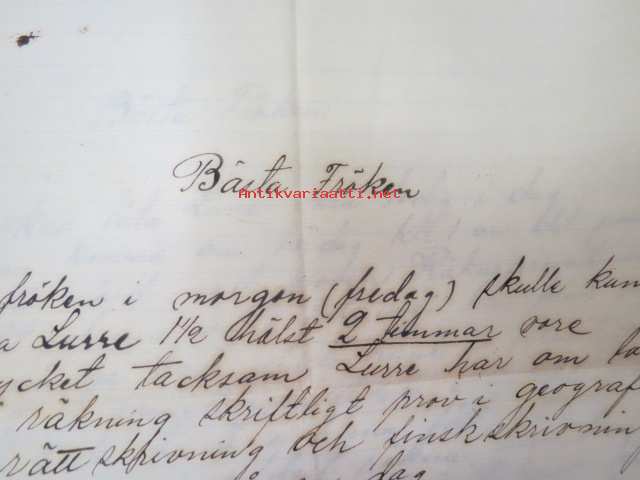 Bästa Fröken
Antikvariaatti.net
fröken i morgon (fredag) skulle kun
a Lurre 1½ hälst 2 timmar vore
ycket tacksam Lurre har om
räkning skriftligt prov i geograf
rättskrivning och finskskrivnin
dag